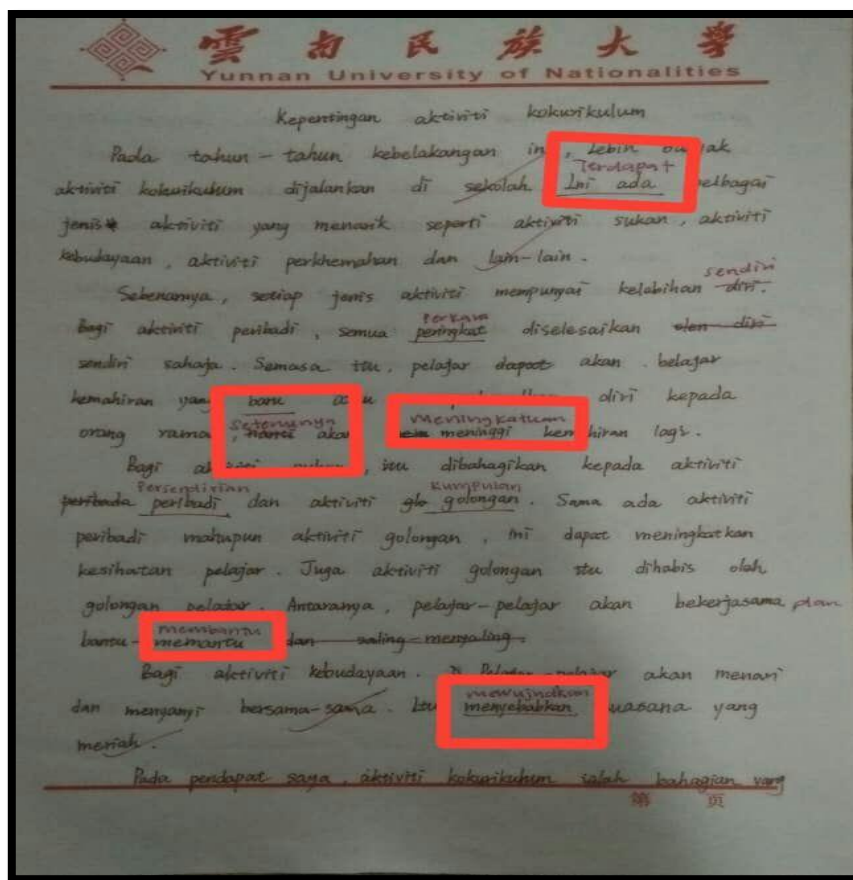 雲南民族大學
Yunnan University of Nationalities
Kepentingan aktiviti kokurikulum
Pada tahun-tahun kebelakangan ini, Lebih
Terdapat
aktiviti kokurikulum dijalankan di sekolah. Ini ada pelbagai
jenis aktiviti yang menarik seperti aktiviti sukan, aktiviti
kebudayaan, aktiviti perkhemahan dan lain-lain.
sendiri
Sebenarnya, setiap jenis aktiviti mempunyai kelebihan diri.
perkara
Bagi aktiviti peribadi, semua peringkat diselesaikan olen diri
sendiri sahaja. Semasa itu, pelajar dapat akan belajar
kemahiran yang baru diri kepada
Seterusnya Meningkatkan
orang ramai, nanti akan mem meninggi kemahiran lagi.
Bagi aktiviti, itu dibahagikan kepada aktiviti
Persendirian Kumpulan
peribada peribadi dan aktiviti glo golongan. Sama ada aktiviti
peribadi mahupun aktiviti golongan, ini dapat meningkatkan
kesihatan pelajar. Juga aktiviti golongan itu dihabis oleh
golongan pelajar. Antaranya, pelajar-pelajar akan bekerjasama dan
membantu
bantu-memantu dan saling-menyaling
Bagi aktiviti kebudayaan. Pelajar-pelajar akan menari
mewujudkan
dan menyanyi bersama-sama. Itu menyebabkan suasana yang
meriah.
Pada pendapat saya, aktiviti kokurikulum ialah bahagian yang
第 页